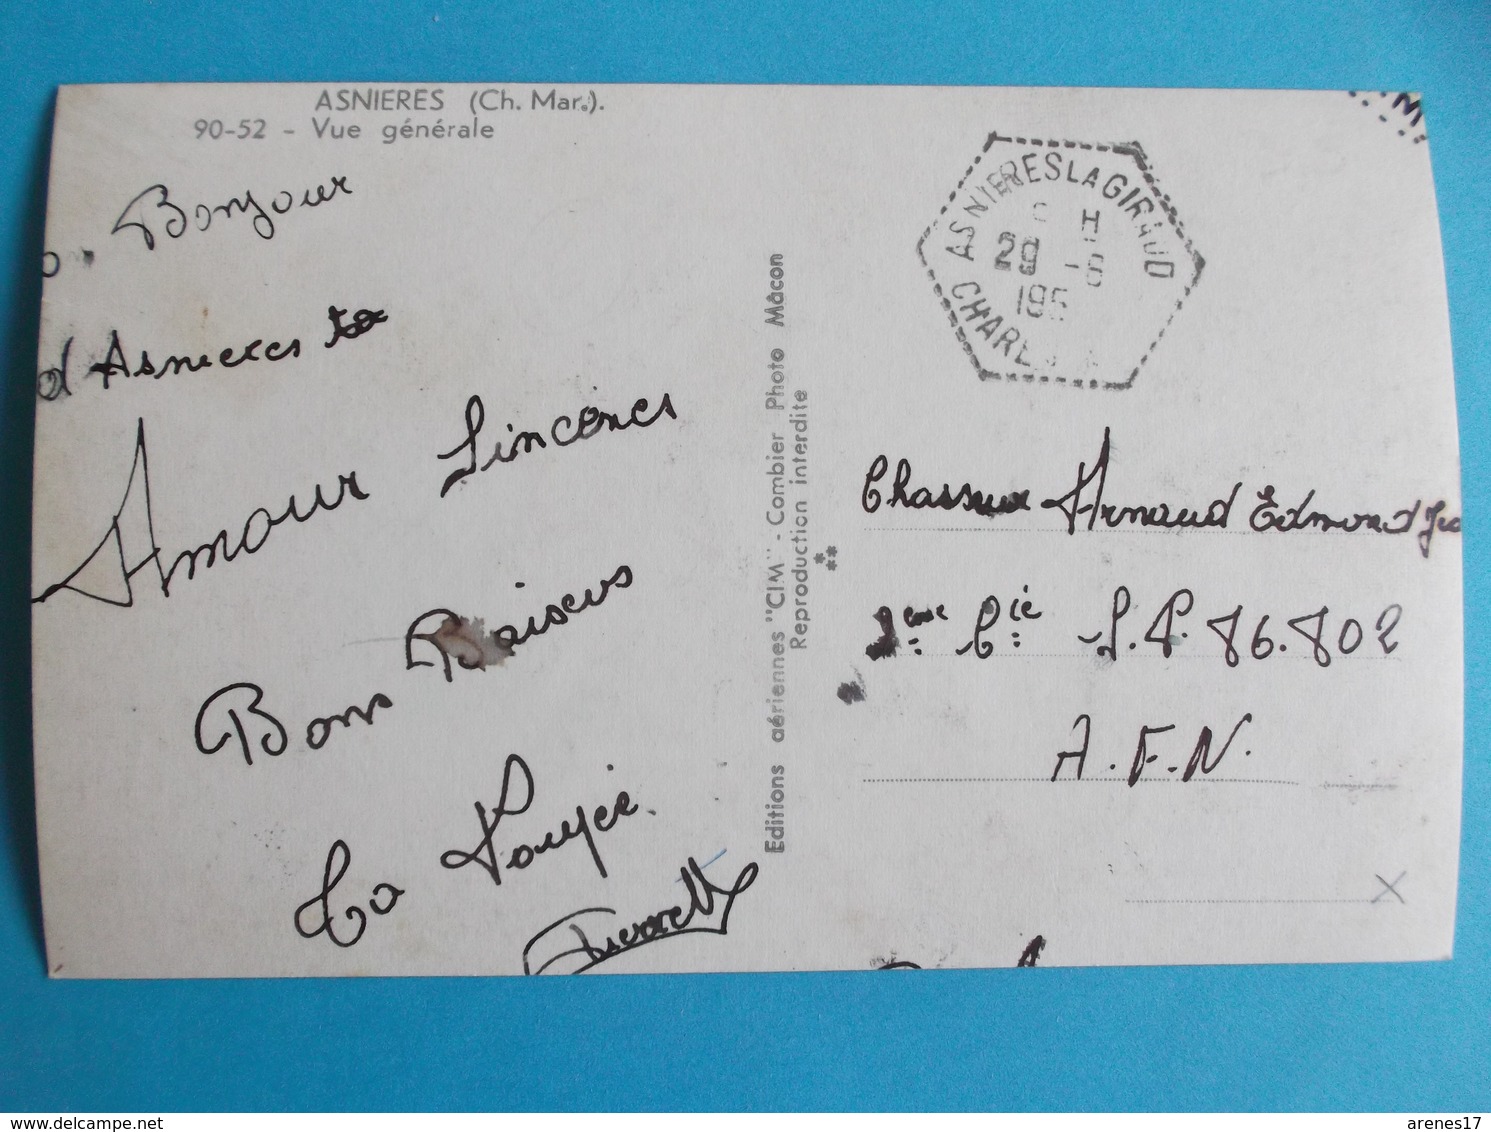 ASNIERES (Ch. Mar.).
90-52 - Vue générale
Bonjour
d'Asnieres
Amour Sincères
Bons Baisers
Editions aériennes "CIM" - Combier Photo Mâcon
Reproduction interdite
ASNIERES LA GIRAUD
H
29 -6
195
CHARE
Chasseur Arnaud Edmond
eme Cie S.P. 86.802
A.F.N.
X
arenes17